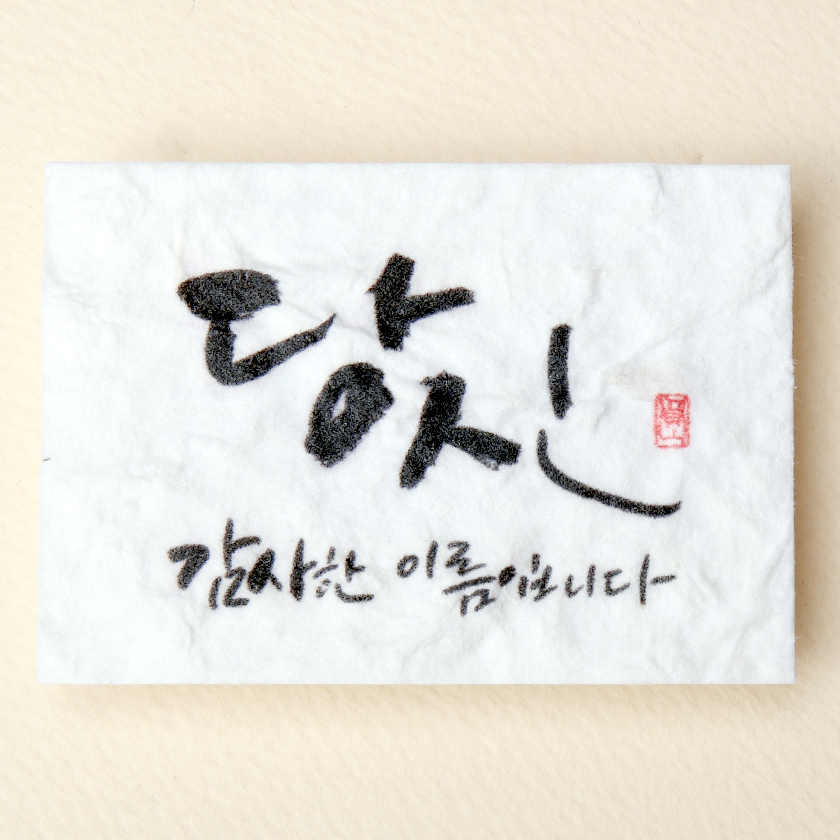 당신
감사한 이름입니다